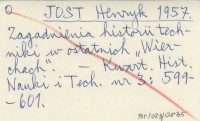 O JOST Henryk 1957.
Zagadnienia historii tech-
niki w ostatnich „Wier-
chach". — Kwart. Hist.
Nauki i Tech. nr 3: 599-
-601.